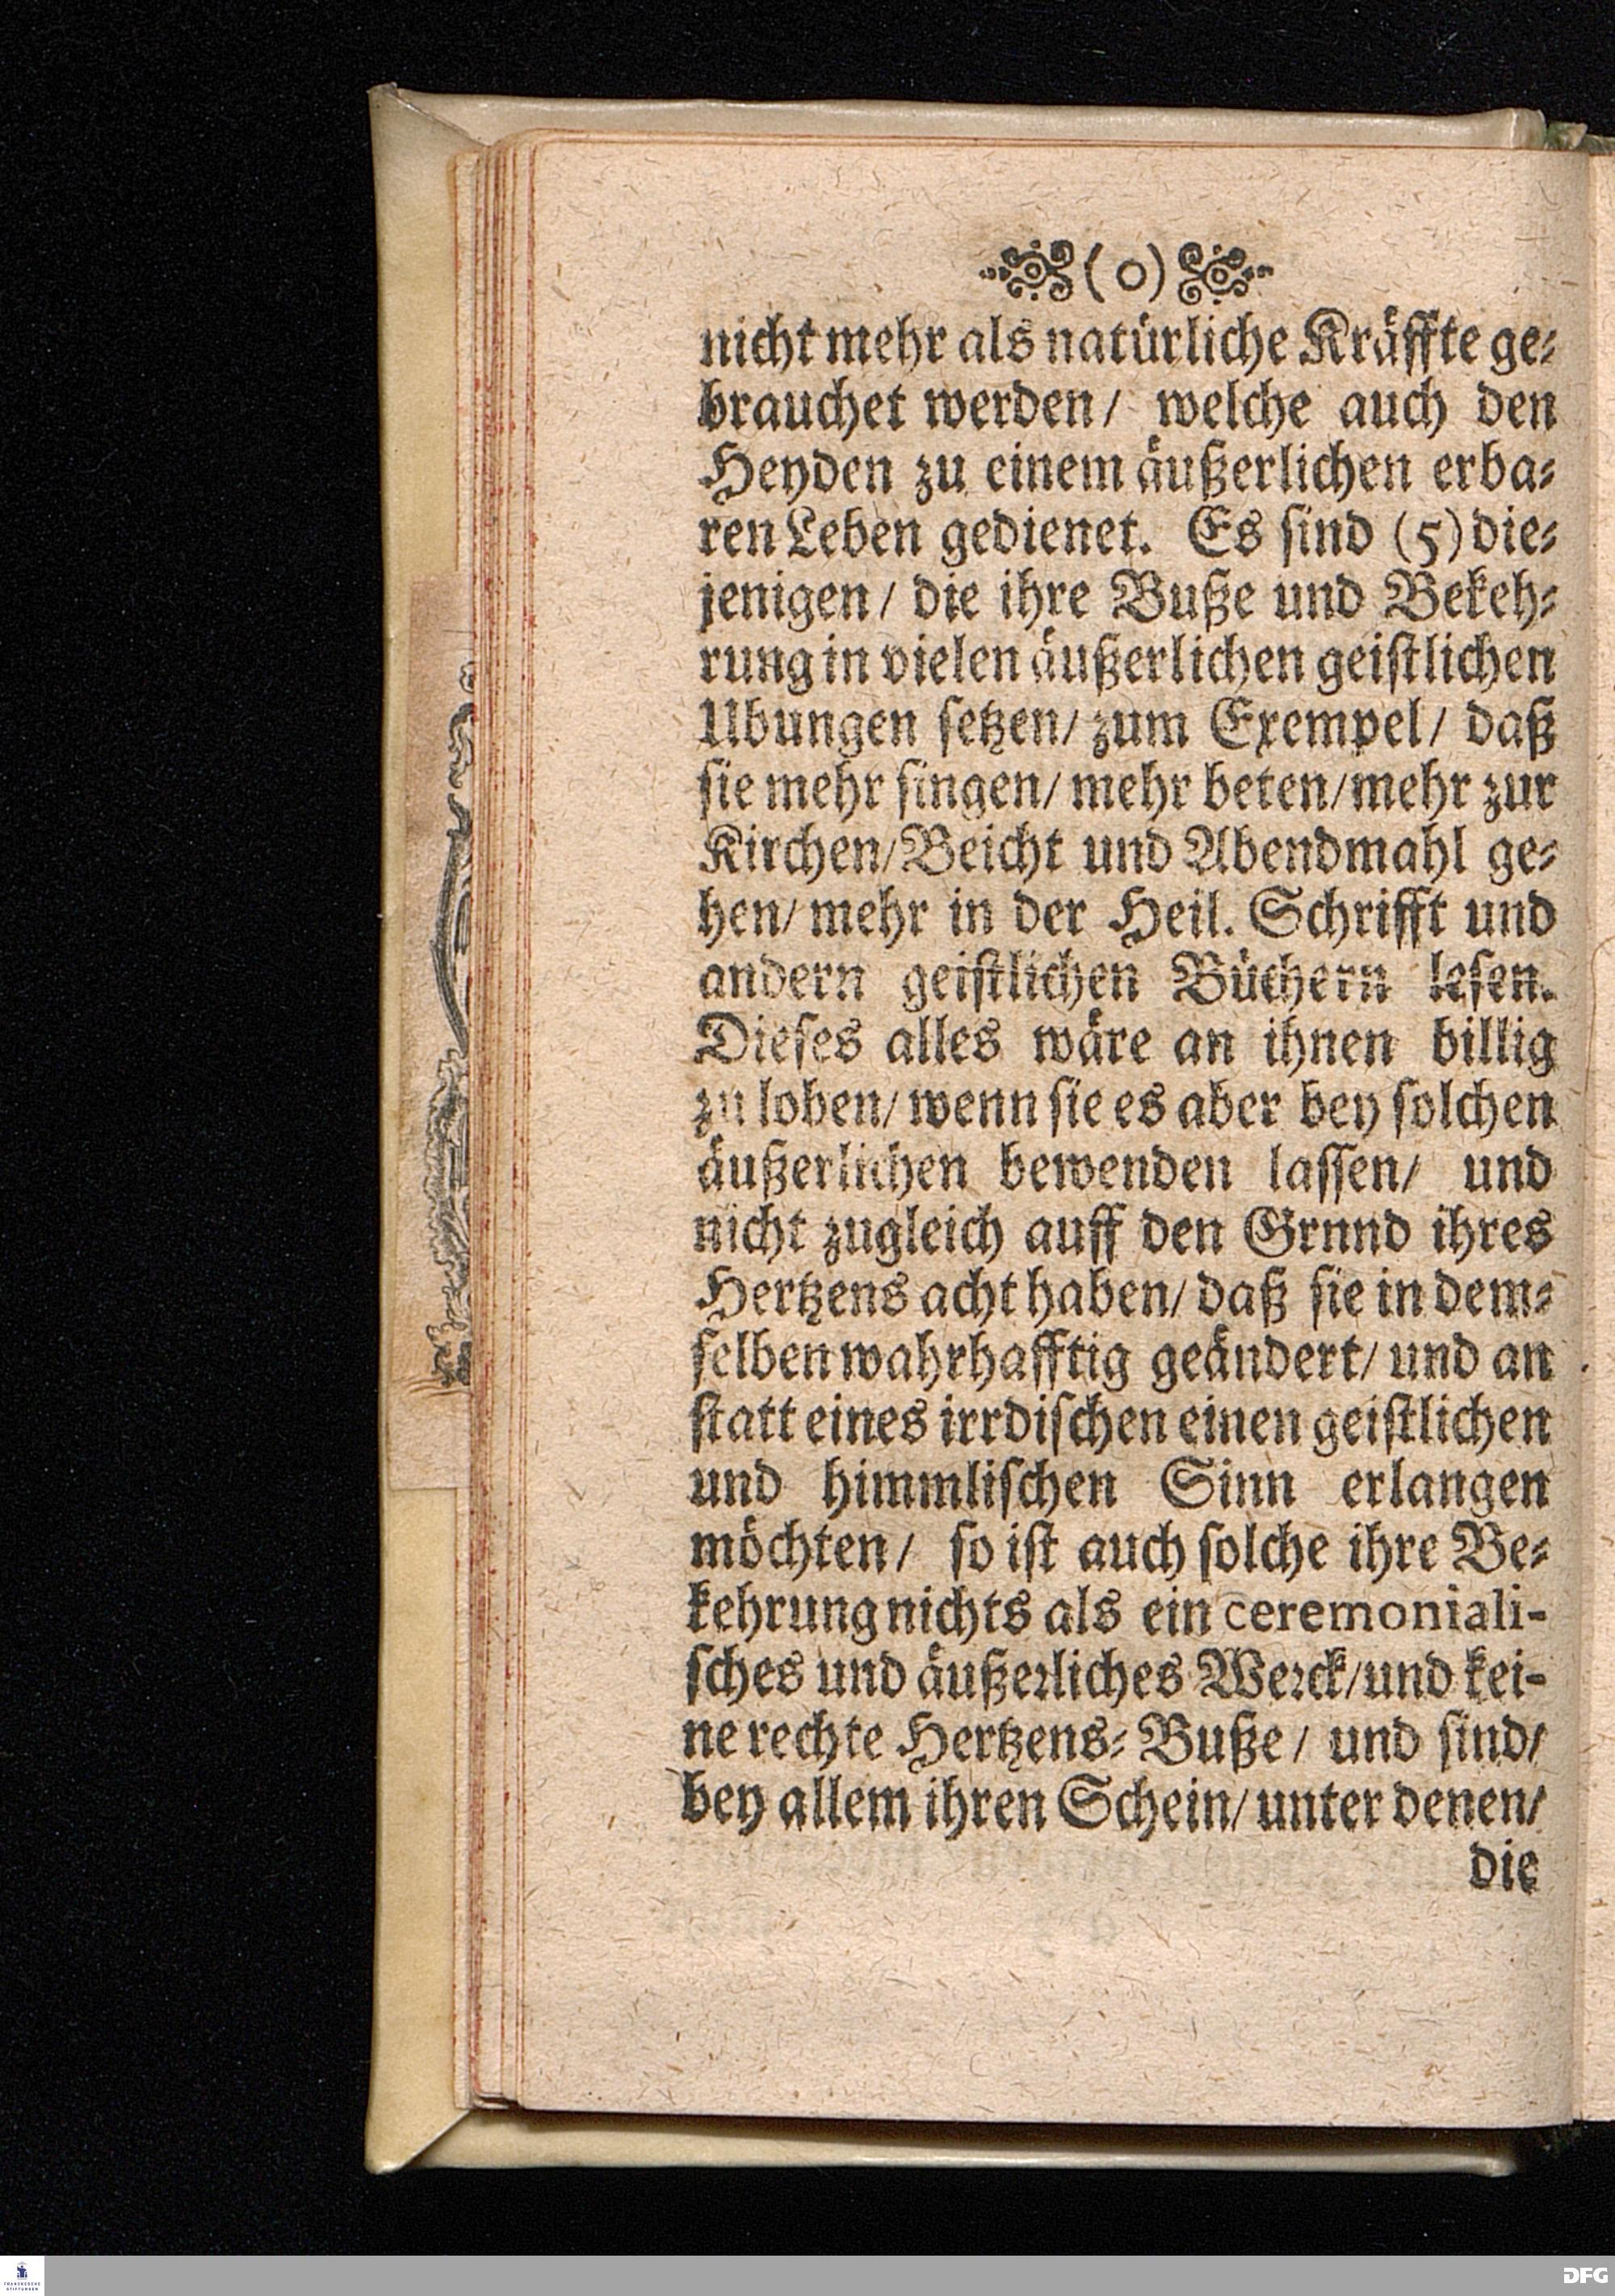 (o)
nicht mehr als natürliche Kräffte ge⸗
brauchet werden/ welche auch den
Heyden zu einem äußerlichen erba⸗
ren Leben gedienet. Es sind (5) die⸗
jenigen/ die ihre Buße und Bekeh⸗
rung in vielen äußerlichen geistlichen
Ubungen setzen/ zum Exempel/ daß
sie mehr singen/ mehr beten/ mehr zur
Kirchen/ Beicht und Abendmahl ge⸗
hen/ mehr in der Heil. Schrifft und
andern geistlichen Büchern lesen.
Dieses alles wäre an ihnen billig
zu loben/ wenn sie es aber bey solchen
äußerlichen bewenden lassen/ und
nicht zugleich auff den Grnnd ihres
Hertzens acht haben/ daß sie in dem⸗
selben wahrhafftig geändert/ und an
statt eines irrdischen einen geistlichen
und himmlischen Sinn erlangen
möchten/ so ist auch solche ihre Be⸗
kehrung nichts als ein ceremoniali-
sches und äußerliches Werck/ und kei-
ne rechte Hertzens⸗Buße/ und sind/
bey allem ihren Schein/ unter denen/
die
FRANCKESCHE
STIFTUNGEN
DFG